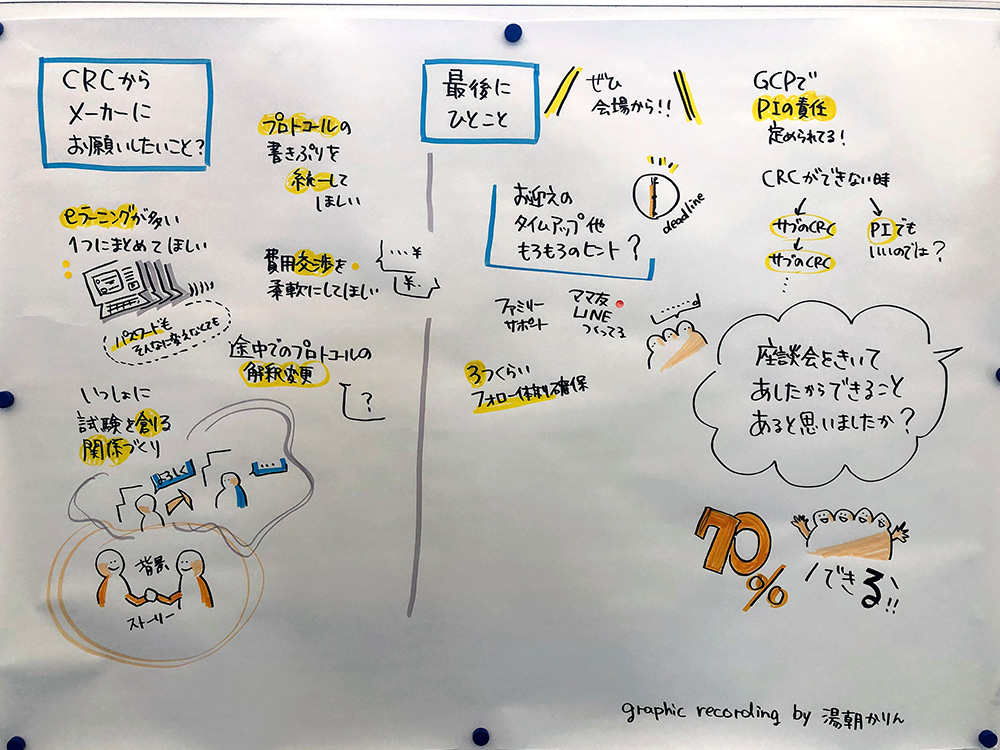 CRCから
メーカーに
お願いしたいこと?
eラーニングが多い
1つにまとめてほしい
パスワードも
そんなに変えなくても
いっしょに
試験を創る
関係づくり
よろしく
....
背景
ストーリー
プロトコールの
書きぶりを
統一して
ほしい
費用交渉を
柔軟にしてほしい
....¥
¥..
途中でのプロトコールの
解釈変更
?
最後に
ひとこと
ぜひ
会場から!!
お迎えの
タイムアップ他
もろもろのヒント?
deadline
ファミリー
サポート
ママ友
LINE
つくってる
3つくらい
フォロー体制確保
GCPで
PIの責任
定められてる!
CRCができない時
サブのCRC
サブのCRC
PIでも
いいのでは?
座談会をきいて
あしたからできること
あると思いましたか?
70%
できる!!
graphic recording by 湯朝かりん